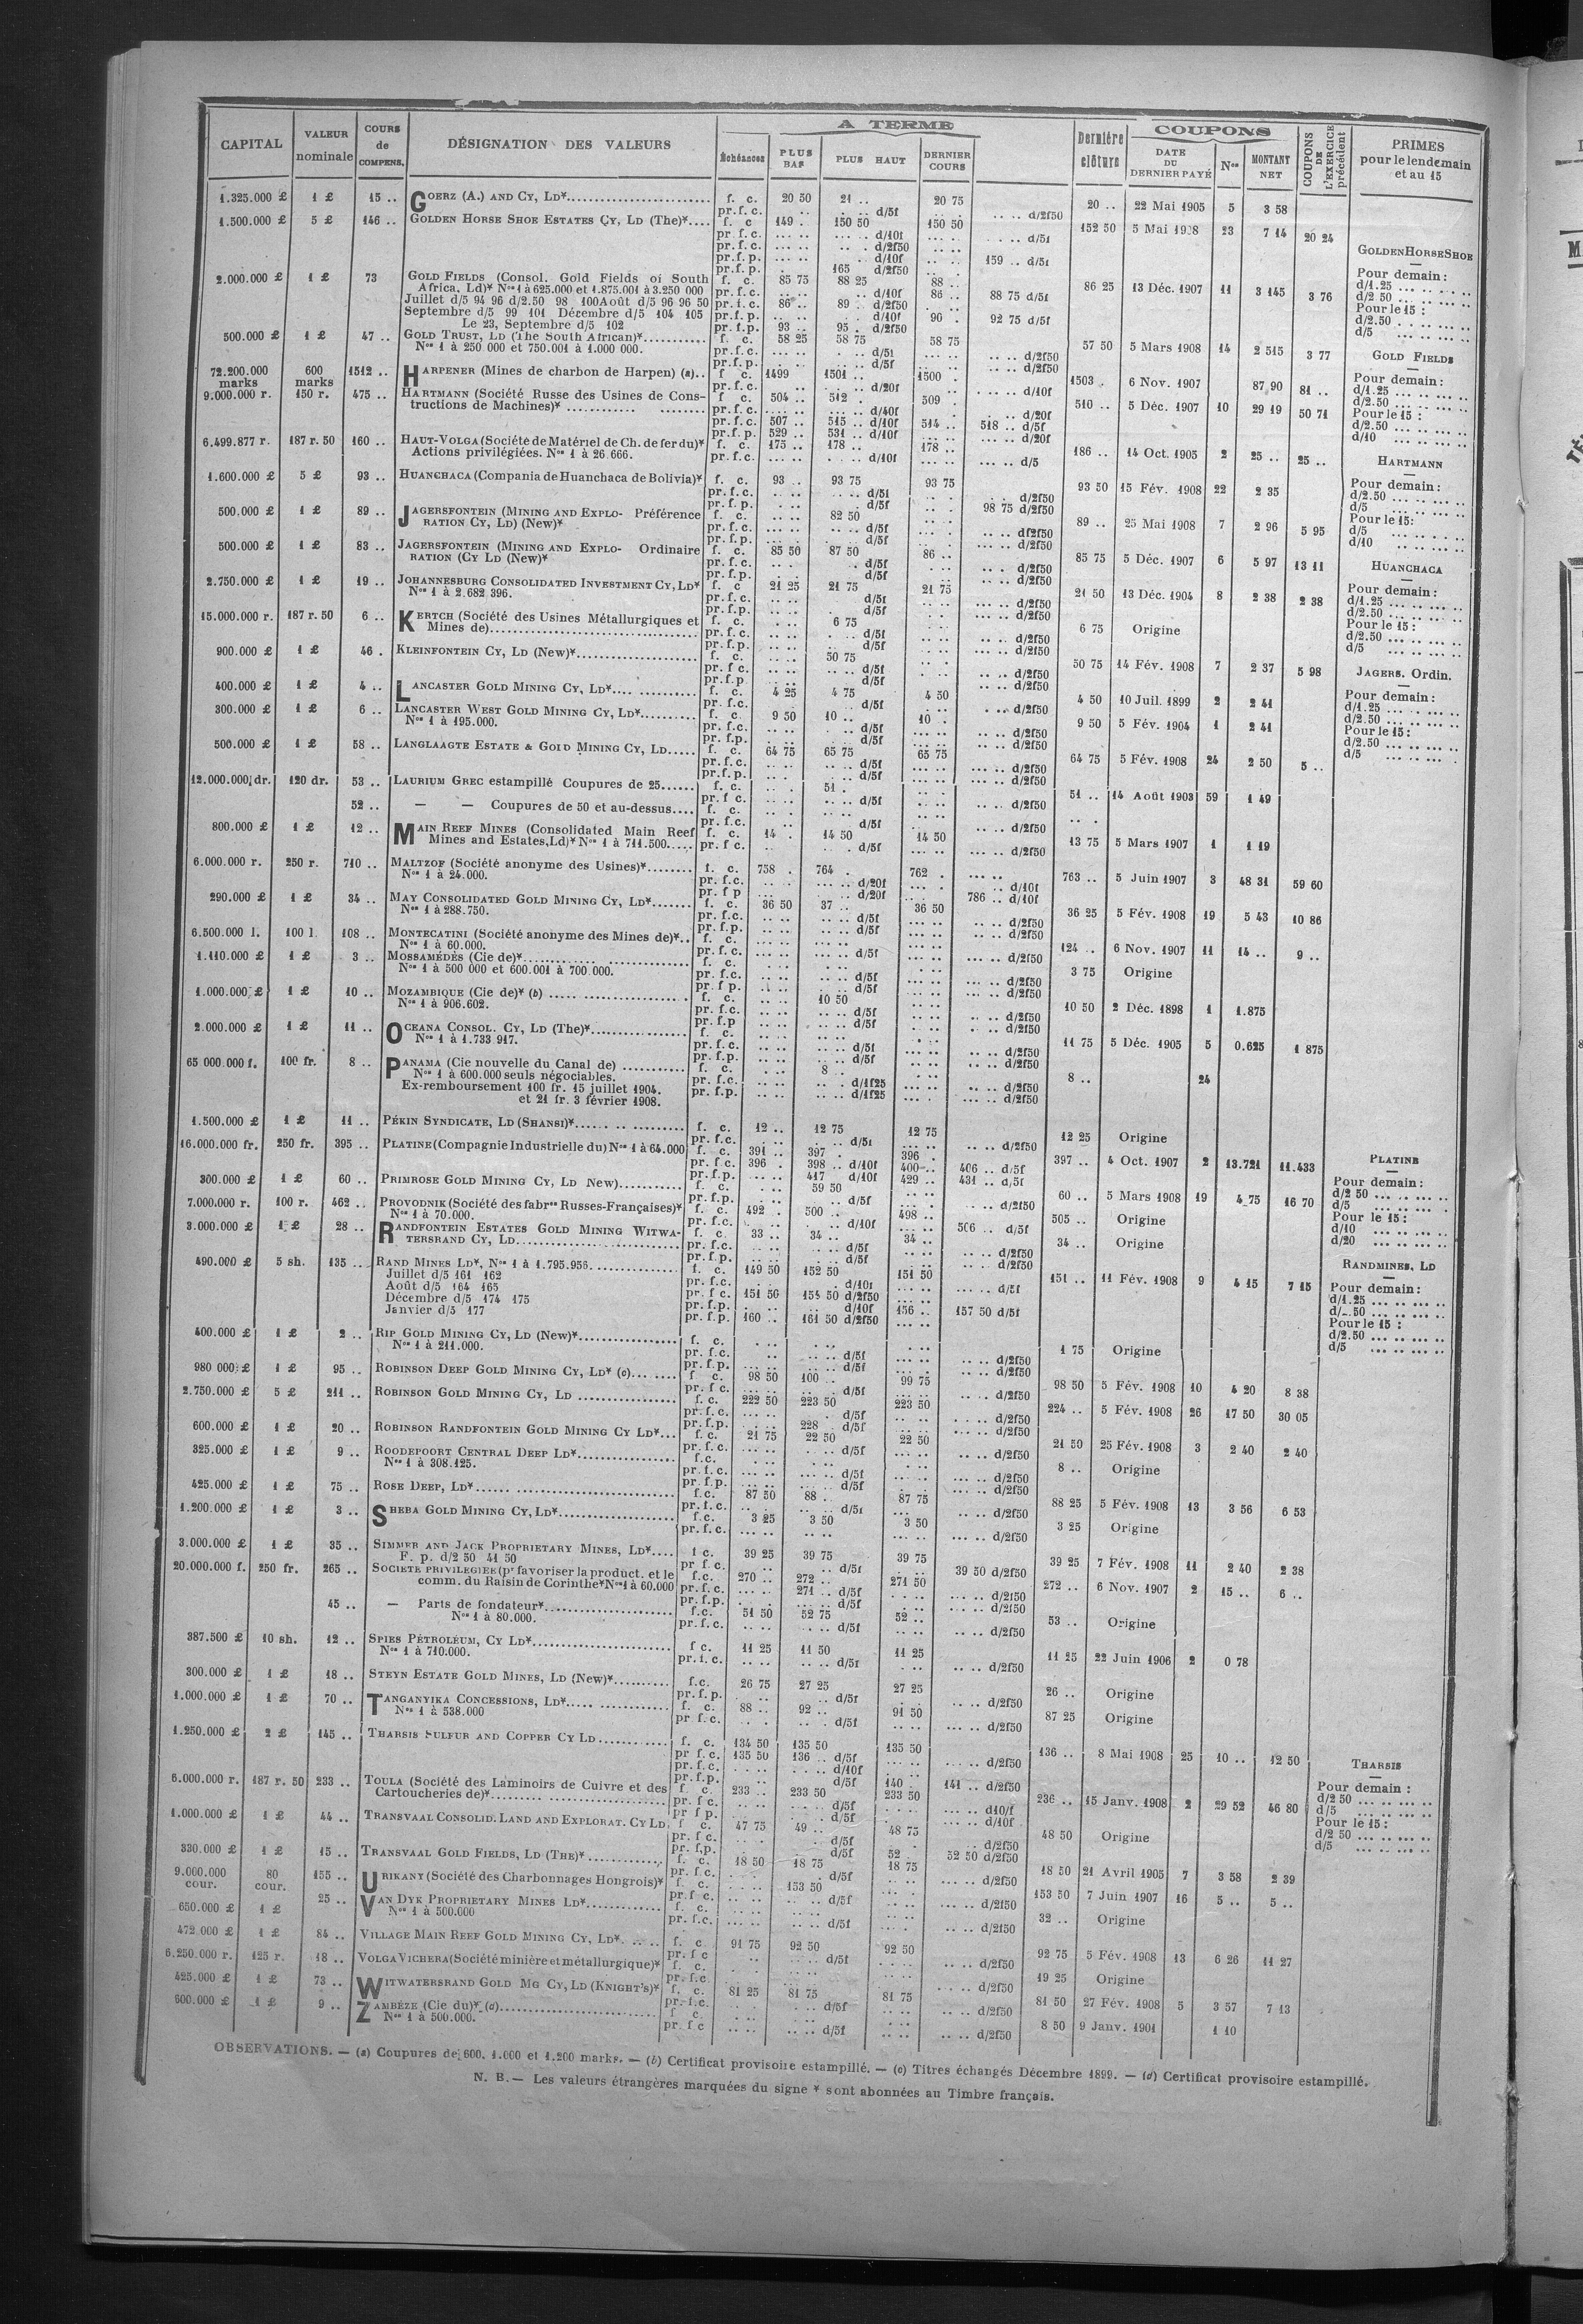 CAPITAL | VALEUR nominale | COURS de COMPENS. | DÉSIGNATION DES VALEURS | A TERME | Dernière clôture | COUPONS | COUPONS DE L'EXERCICE précédent | PRIMES pour le lendemain et au 15
Échéances | PLUS BAS | PLUS HAUT | DERNIER COURS | DATE DU DERNIER PAYÉ | Nos | MONTANT NET
1.325.000 £ 1 £ 15 .. GOERZ (A.) AND CY, LD* f. c. 20 50 21 .. 20 75 20 .. 22 Mai 1905 5 3 58
pr. f. c. d/5f d/2f50
1.500.000 £ 5 £ 146 .. GOLDEN HORSE SHOE ESTATES CY, LD (The)* f. c 149 . 150 50 150 50 152 50 23 7 14 20 24
pr. f. c. d/10f d/5f
pr. f. c. d/2f50
pr. f. p. d/10f 159 .. d/5f
pr. f. p. 165 d/2f50
2.000.000 £ 1 £ 73 GOLD FIELDS (Consol. Gold Fields of South f. c. 85 75 88 25 88 .. 86 25 13 Déc. 1907 11 3 145 3 76
Africa, Ld)* Nos 1 à 625.000 et 1.875.001 à 3.250 000 pr. f. c. d/10f 88 75 d/5f
Juillet d/5 94 96 d/2.50 98 100 Août d/5 96 96 50 pr. f. c. 86 .. 89 .. d/2f50
Septembre d/5 99 101 Décembre d/5 104 105 pr. f. p. d/10f 90 . 92 75 d/5f
Le 23, Septembre d/5 102 pr. f. p. 93 .. 95 . d/2f50
500.000 £ 1 £ 47 .. GOLD TRUST, LD (The South African)* f. c. 58 25 58 75 58 75 57 50 5 Mars 1908 14 2 515 3 77
Nos 1 à 250 000 et 750.001 à 1.000 000. pr. f. c. d/5f d/2f50
pr. f. p. d/5f d/2f50
72.200.000 marks 600 marks 1512 .. HARPENER (Mines de charbon de Harpen) (a).. f c. 1499 1501 .. 1500 . 1503 . 6 Nov. 1907 87,90 81 ..
pr. f. c. d/20f d/10f
9.000.000 r. 150 r. 475 .. HARTMANN (Société Russe des Usines de Cons- f c. 504 .. 512 . 509 . 510 .. 5 Déc. 1907 10 29 19 50 71
tructions de Machines)* pr. f. c. d/40f d/20f
pr. f. c. 507 .. 515 .. d/10f 514 .. 518 .. d/5f
pr. f. p. 529 .. 531 .. d/10f d/20f
6.499.877 r. 187 r. 50 160 .. HAUT-VOLGA (Société de Matériel de Ch. de fer du)* f. c. 175 .. 178 .. 178 .. 186 .. 14 Oct. 1905 2 25 .. 25 ..
Actions privilégiées. Nos 1 à 26.666. pr. f. c. d/10f d/5
1.600.000 £ 5 £ 93 .. HUANCHACA (Compania de Huanchaca de Bolivia)* f. c. 93 .. 93 75 93 75 93 50 15 Fév. 1908 22 2 35
pr. f. c. d/5f d/2f50
pr. f. p. d/5f 98 75 d/2f50
500.000 £ 1 £ 89 .. JAGERSFONTEIN (MINING AND EXPLO- Préférence f. c. 82 50 89 .. 25 Mai 1908 7 2 96 5 95
RATION CY, LD) (New)* pr. f. c. d/5f d/2f50
pr. f. p. d/5f d/2f50
500.000 £ 1 £ 83 .. JAGERSFONTEIN (MINING AND EXPLO- Ordinaire f. c. 85 50 87 50 86 .. 85 75 5 Déc. 1907 6 5 97 13 11
RATION (CY LD (New)* pr. f. c. d/5f d/2f50
pr. f. p. d/5f d/2f50
2.750.000 £ 1 £ 19 .. JOHANNESBURG CONSOLIDATED INVESTMENT CY, LD* f. c 21 25 21 75 21 75 21 50 13 Déc. 1904 8 2 38 2 38
Nos 1 à 2.682 396. pr. f. c. d/5f d/2f50
pr. f. p. d/5f d/2f50
15.000.000 r. 187 r. 50 6 .. KERTCH (Société des Usines Métallurgiques et f. c. 6 75 6 75 Origine
Mines de) pr. f. c. d/5f d/2f50
pr. f. p. d/5f d/2f50
900.000 £ 1 £ 46 . KLEINFONTEIN CY, LD (New)* f. c. 50 75 50 75 14 Fév. 1908 7 2 37 5 98
pr. f c. d/5f d/2f50
pr. f. p d/5f d/2f50
400.000 £ 1 £ 4 .. LANCASTER GOLD MINING CY, LD* f. c. 4 25 4 75 4 50 4 50 10 Juil. 1899 2 2 41
pr. f. c. d/5f d/2f50
300.000 £ 1 £ 6 .. LANCASTER WEST GOLD MINING CY, LD* f. c. 9 50 10 .. 10 .. 9 50 5 Fév. 1904 1 2 41
Nos 1 à 195.000. pr. f. c. d/5f d/2f50
pr. f. p. d/5f d/2f50
500.000 £ 1 £ 58 .. LANGLAAGTE ESTATE & GOLD MINING CY, LD f. c. 64 75 65 75 65 75 64 75 5 Fév. 1908 24 2 50 5 ..
pr. f. c. d/5f d/2f50
pr. f. p. d/5f d/2f50
12.000.000 dr. 120 dr. 53 .. LAURIUM GREC estampillé Coupures de 25 f. c. 51 . 51 .. 14 Août 1903 59 1 49
pr. f c. d/5f d/2f50
52 .. — — Coupures de 50 et au-dessus f. c.
pr. f. c. d/5f d/2f50
800.000 £ 1 £ 12 .. MAIN REEF MINES (Consolidated Main Reef f. c. 14 . 14 50 14 50 13 75 5 Mars 1907 1 1 19
Mines and Estates, Ld)* Nos 1 à 711.500. pr. f c. d/5f d/2f50
6.000.000 r. 250 r. 710 .. MALTZOF (Société anonyme des Usines)* f. c. 758 . 764 . 762 . 763 .. 5 Juin 1907 3 48 31 59 60
Nos 1 à 24.000. pr. f. c. d/20f d/10f
pr. f p d/20f 786 .. d/10f
290.000 £ 1 £ 34 .. MAY CONSOLIDATED GOLD MINING CY, LD* f. c. 36 50 37 .. 36 50 36 25 5 Fév. 1908 19 5 43 10 86
Nos 1 à 288.750. pr. f. c. d/5f d/2f50
pr. f. p. d/5f d/2f50
6.500.000 l. 100 l. 108 .. MONTECATINI (Société anonyme des Mines de)* f. c. 124 .. 6 Nov. 1907 11 14 .. 9 ..
Nos 1 à 60.000. pr. f. c. d/5f d/2f50
1.110.000 £ 1 £ 3 .. MOSSAMÉDÈS (Cie de)* f. c. 3 75 Origine
Nos 1 à 500 000 et 600.001 à 700.000. pr. f. c. d/5f d/2f50
pr. f p. d/5f d/2f50
1.000.000 £ 1 £ 10 .. MOZAMBIQUE (Cie de)* (b) f. c. 10 50 10 50 2 Déc. 1898 1 1.875
Nos 1 à 906.602. pr. f. c. d/5f d/2f50
pr. f. p d/5f d/2f50
2.000.000 £ 1 £ 11 .. OCEANA CONSOL. CY, LD (The)* f. c. 11 75 5 Déc. 1905 5 0.625 1 875
Nos 1 à 1.733 917. pr. f. c. d/5f d/2f50
pr. f. p. d/5f d/2f50
65 000.000 f. 100 fr. 8 .. PANAMA (Cie nouvelle du Canal de) f. c. 8 .. 8 .. 24
Nos 1 à 600.000 seuls négociables. pr. f. c. d/1f25 d/2f50
Ex-remboursement 100 fr. 15 juillet 1904. pr. f. p. d/1f25 d/2f50
et 21 fr. 3 février 1908.
1.500.000 £ 1 £ 11 .. PÉKIN SYNDICATE, LD (SHANSI)* f. c. 12 .. 12 75 12 75 12 25 Origine
pr. f. c. d/5f d/2f50
16.000.000 fr. 250 fr. 395 .. PLATINE (Compagnie Industrielle du) Nos 1 à 64.000 f. c. 391 .. 397 . 396 . 397 .. 4 Oct. 1907 2 13.721 11.433
pr. f c. 396 . 398 .. d/10f 400 .. 406 .. d/5f
pr. f. p. 417 d/10f 429 .. 431 .. d/5f
300.000 £ 1 £ 60 .. PRIMROSE GOLD MINING CY, LD New) f. c. 59 50 60 .. 5 Mars 1908 19 4 75 16 70
pr. f. p. d/5f d/2f50
7.000.000 r. 100 r. 462 .. PROVODNIK (Société des fabres Russes-Françaises)* f. c. 492 . 500 .. 498 .. 505 .. Origine
Nos 1 à 70.000. pr. f. c. d/10f 506 .. d/5f
3.000.000 £ 1 £ 28 .. RANDFONTEIN ESTATES GOLD MINING WITWA- f. c. 33 .. 34 .. 34 .. 34 .. Origine
TERSRAND CY, LD pr. f. c. d/5f d/2f50
pr. f. p. d/5f d/2f50
490.000 £ 5 sh. 135 .. RAND MINES LD*, Nos 1 à 1.795.956. f. c. 149 50 152 50 151 50 151 .. 11 Fév. 1908 9 4 15 7 15
Juillet d/5 161 162 pr. f. c. d/10f d/5f
Août d/5 164 165 pr. f c. 151 50 154 50 d/2f50
Décembre d/5 174 175 pr. f. p. d/10f 156 .. 157 50 d/5f
Janvier d/5 177 pr. f. p. 160 .. 161 50 d/2f50
400.000 £ 1 £ 2 .. RIP GOLD MINING CY, LD (New)* f. c. 1 75 Origine
Nos 1 à 211.000. pr. f. c. d/5f d/2f50
pr. f. p. d/5f d/2f50
980 000 £ 1 £ 95 .. ROBINSON DEEP GOLD MINING CY, LD* (c) f c. 98 50 100 .. 99 75 98 50 5 Fév. 1908 10 4 20 8 38
pr. f c. d/5f d/2f50
2.750.000 £ 5 £ 211 .. ROBINSON GOLD MINING CY, LD f. c. 222 50 223 50 223 50 224 .. 5 Fév. 1908 26 17 50 30 05
pr. f. c. d/5f d/2f50
pr. f. p. 228 . d/5f d/2f50
600.000 £ 1 £ 20 .. ROBINSON RANDFONTEIN GOLD MINING CY LD* f. c. 21 75 22 50 22 50 21 50 25 Fév. 1908 3 2 40 2 40
pr. f. c. d/5f d/2f50
325.000 £ 1 £ 9 .. ROODEPOORT CENTRAL DEEP LD* f. c. 8 .. Origine
Nos 1 à 308.125. pr. f. c. d/5f d/2f50
pr. f. p. d/5f d/2f50
425.000 £ 1 £ 75 .. ROSE DEEP, LD* f. c. 87 50 88 . 87 75 88 25 5 Fév. 1908 13 3 56 6 53
pr. f. c. d/5f d/2f50
1.200.000 £ 1 £ 3 .. SHEBA GOLD MINING CY, LD* f. c. 3 25 3 50 3 50 3 25 Origine
pr. f. c. d/2f50
3.000.000 £ 1 £ 35 .. SIMMER AND JACK PROPRIETARY MINES, LD* f c. 39 25 39 75 39 75 39 25 7 Fév. 1908 11 2 40 2 38
F. p. d/2 50 41 50 pr f. c. d/5f 39 50 d/2f50
20.000.000 f. 250 fr. 265 .. SOCIÉTÉ PRIVILÉGIÉE (pr favoriser la product. et le f. c. 270 .. 272 .. 271 50 272 .. 6 Nov. 1907 2 15 .. 6 ..
comm. du Raisin de Corinthe* Nos 1 à 60.000 pr. f. c. 271 .. d/5f d/2f50
pr. f. p. d/5f d/2f50
45 .. — Parts de fondateur* f. c. 51 50 52 75 52 .. 53 .. Origine
Nos 1 à 80.000. pr. f. c. d/5f d/2f50
387.500 £ 10 sh. 12 .. SPIES PÉTROLÉUM, CY LD* f c. 11 25 11 50 11 25 11 25 22 Juin 1906 2 0 78
Nos 1 à 710.000. pr. f. c. d/5f d/2f50
300.000 £ 1 £ 18 .. STEYN ESTATE GOLD MINES, LD (New)* f. c. 26 75 27 25 27 25 26 .. Origine
pr. f. p. d/5f d/2f50
1.000.000 £ 1 £ 70 .. TANGANYIKA CONCESSIONS, LD* f. c. 88 .. 92 .. 91 50 87 25 Origine
Nos 1 à 538.000 pr f. c. d/5f d/2f50
1.250.000 £ 2 £ 145 .. THARSIS SULFUR AND COPPER CY LD f. c. 134 50 135 50 135 50 136 .. 8 Mai 1908 25 10 .. 12 50
pr f. c. 135 50 136 .. d/5f d/2f50
pr. f. c. d/10f
pr. f. p. d/5f 140 . 141 .. d/2f50
6.000.000 r. 187 r. 50 233 .. TOULA (Société des Laminoirs de Cuivre et des f c. 233 .. 233 50 233 50 236 .. 15 Janv. 1908 2 29 52 46 80
Cartoucheries de)* pr. f c. d/5f d10/f
pr f p. d/5f d/10f
1.000.000 £ 1 £ 44 .. TRANSVAAL CONSOLID. LAND AND EXPLORAT. CY LD f c. 47 75 49 .. 48 75 48 50 Origine
pr. f c. d/5f d/2f50
pr. f. p. d/5f 52 .. 52 50 d/2f50
330.000 £ 1 £ 15 .. TRANSVAAL GOLD FIELDS, LD (THE)* f. c. 18 50 18 75 18 75 18 50 21 Avril 1905 7 3 58 2 39
pr. f c. d/5f d/2f50
9.000.000 cour. 80 cour. 155 .. URIKANY (Société des Charbonnages Hongrois)* f. c. 153 50 153 50 7 Juin 1907 16 5 .. 5 ..
pr. f c. d/5f d/2f50
650.000 £ 1 £ 25 .. VAN DYK PROPRIETARY MINES LD* f. c. 32 .. Origine
Nos 1 à 500.000 pr. f. c. d/5f d/2f50
472.000 £ 1 £ 84 .. VILLAGE MAIN REEF GOLD MINING CY, LD* f. c 91 75 92 50 92 50 92 75 5 Fév. 1908 13 6 26 11 27
pr. f c d/5f d/2f50
6.250.000 r. 125 r. 18 .. VOLGA VICHERA (Société minière et métallurgique)* f. c. 19 25 Origine
pr. f. c. d/2f50
425.000 £ 1 £ 73 .. WITWATERSRAND GOLD MG CY, LD (KNIGHT'S)* f. c. 81 25 81 75 81 75 81 50 27 Fév. 1908 5 3 57 7 13
pr. f. c. d/5f d/2f50
600.000 £ 1 £ 9 .. ZAMBÈZE (Cie du)* (d) f c. 8 50 9 Janv. 1901 1 10
Nos 1 à 500.000. pr. f c d/5f d/2f50
GOLDEN HORSE SHOE
Pour demain :
d/1.25
d/2 50
Pour le 15 :
d/2.50
d/5
GOLD FIELDS
Pour demain :
d/1.25
d/2.50
Pour le 15 :
d/2.50
d/10
HARTMANN
Pour demain :
d/2.50
d/5
Pour le 15 :
d/5
d/10
HUANCHACA
Pour demain :
d/1.25
d/2.50
Pour le 15 :
d/2.50
d/5
JAGERS. Ordin.
Pour demain :
d/1.25
d/2.50
Pour le 15 :
d/2.50
d/5
PLATINE
Pour demain :
d/2 50
d/5
Pour le 15 :
d/10
d/20
RANDMINES, LD
Pour demain :
d/1.25
d/2.50
Pour le 15 :
d/2.50
d/5
THARSIS
Pour demain :
d/2 50
d/5
Pour le 15 :
d/2 50
d/5
OBSERVATIONS. — (a) Coupures de 600, 1.000 et 1.200 marks. — (b) Certificat provisoire estampillé. — (c) Titres échangés Décembre 1899. — (d) Certificat provisoire estampillé.
N. B. — Les valeurs étrangères marquées du signe * sont abonnées au Timbre français.